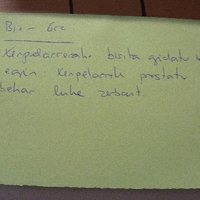 Bio - Gra
Kenpelarrerako berria gidatu
egin: Kenpelarrek prestatu
behar luke zerbait.